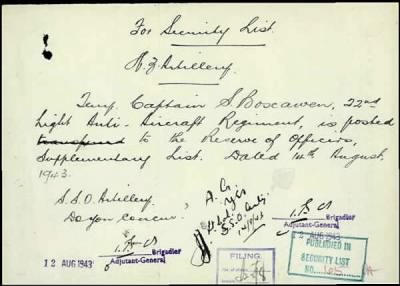 For Security List.
N.Z Artillery.
Temp. Captain S. Boscawen, 22nd
Light Anti-Aircraft Regiment, is posted
to the Reserve of Officers,
Supplementary List. Dated 14th August,
1943.
S.S.O. Artillery.
Do you concur?
A.G.
Yes
S.S.O. Arty
14/8/43
Brigadier
Adjutant-General
12 AUG 1943
Brigadier
Adjutant-General
12 AUG 1943
FILING.
PUBLISHED IN
SECURITY LIST
NO. 105